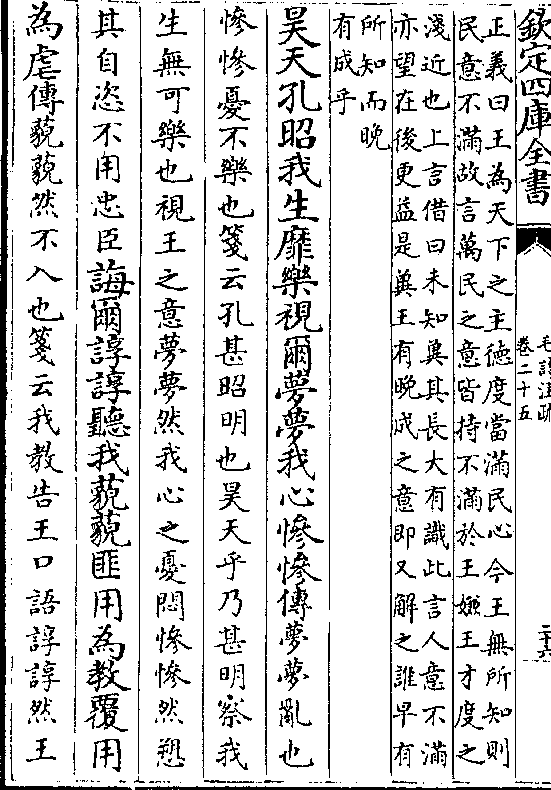 欽定四庫全書
毛詩注疏
卷二十五
二十六
正義曰王為天下之主徳度當滿民心今王無所知則
民意不滿故言萬民之意皆持不滿於王嫌王才度之
淺近也上言借曰未知冀其長大有識此言人意不滿
亦望在後更益是冀王有晚成之意即又解之誰早有
所知而晚
有成乎
昊天孔昭我生靡樂視爾夢夢我心慘慘傳夢夢亂也
慘慘憂不樂也箋云孔甚昭明也昊天乎乃甚明察我
生無可樂也視王之意夢夢然我心之憂悶慘慘然愬
其自恣不用忠臣誨爾諄諄聽我藐藐匪用為教覆用
為虐傳藐藐然不入也箋云我教告王口語諄諄然王